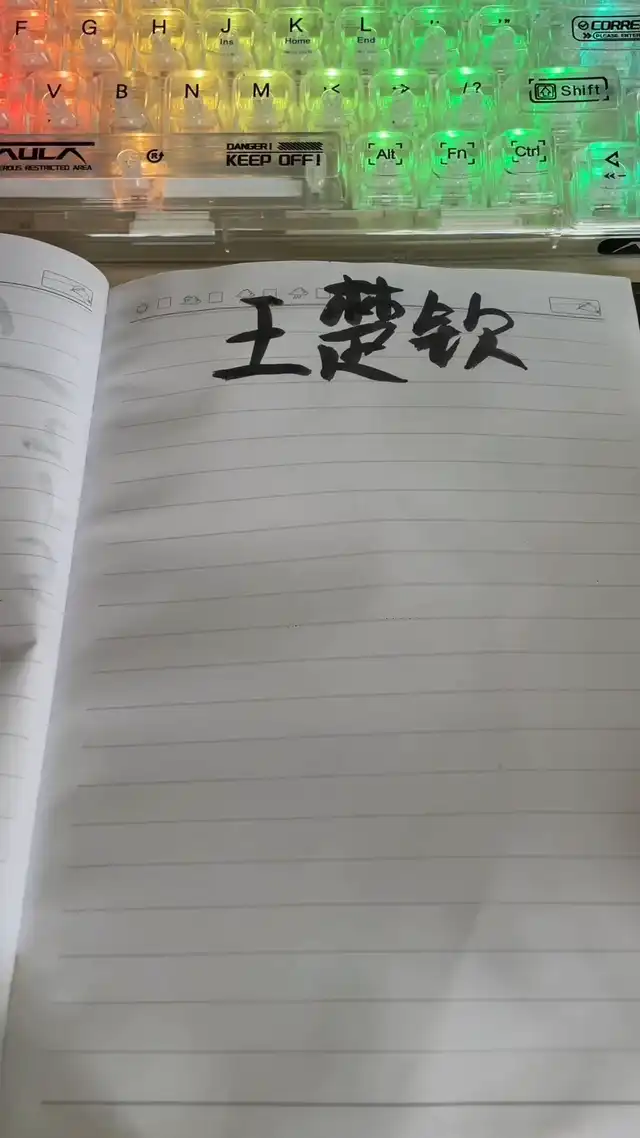 F G H J K L : ; " '
Ins Home End
CORRE
PLEASE ENTER
V B N M , < . > / ? Shift
AULA
EROUS RESTRICTED AREA
DANGER!
KEEP OFF!
Alt Fn Ctrl
王楚钦